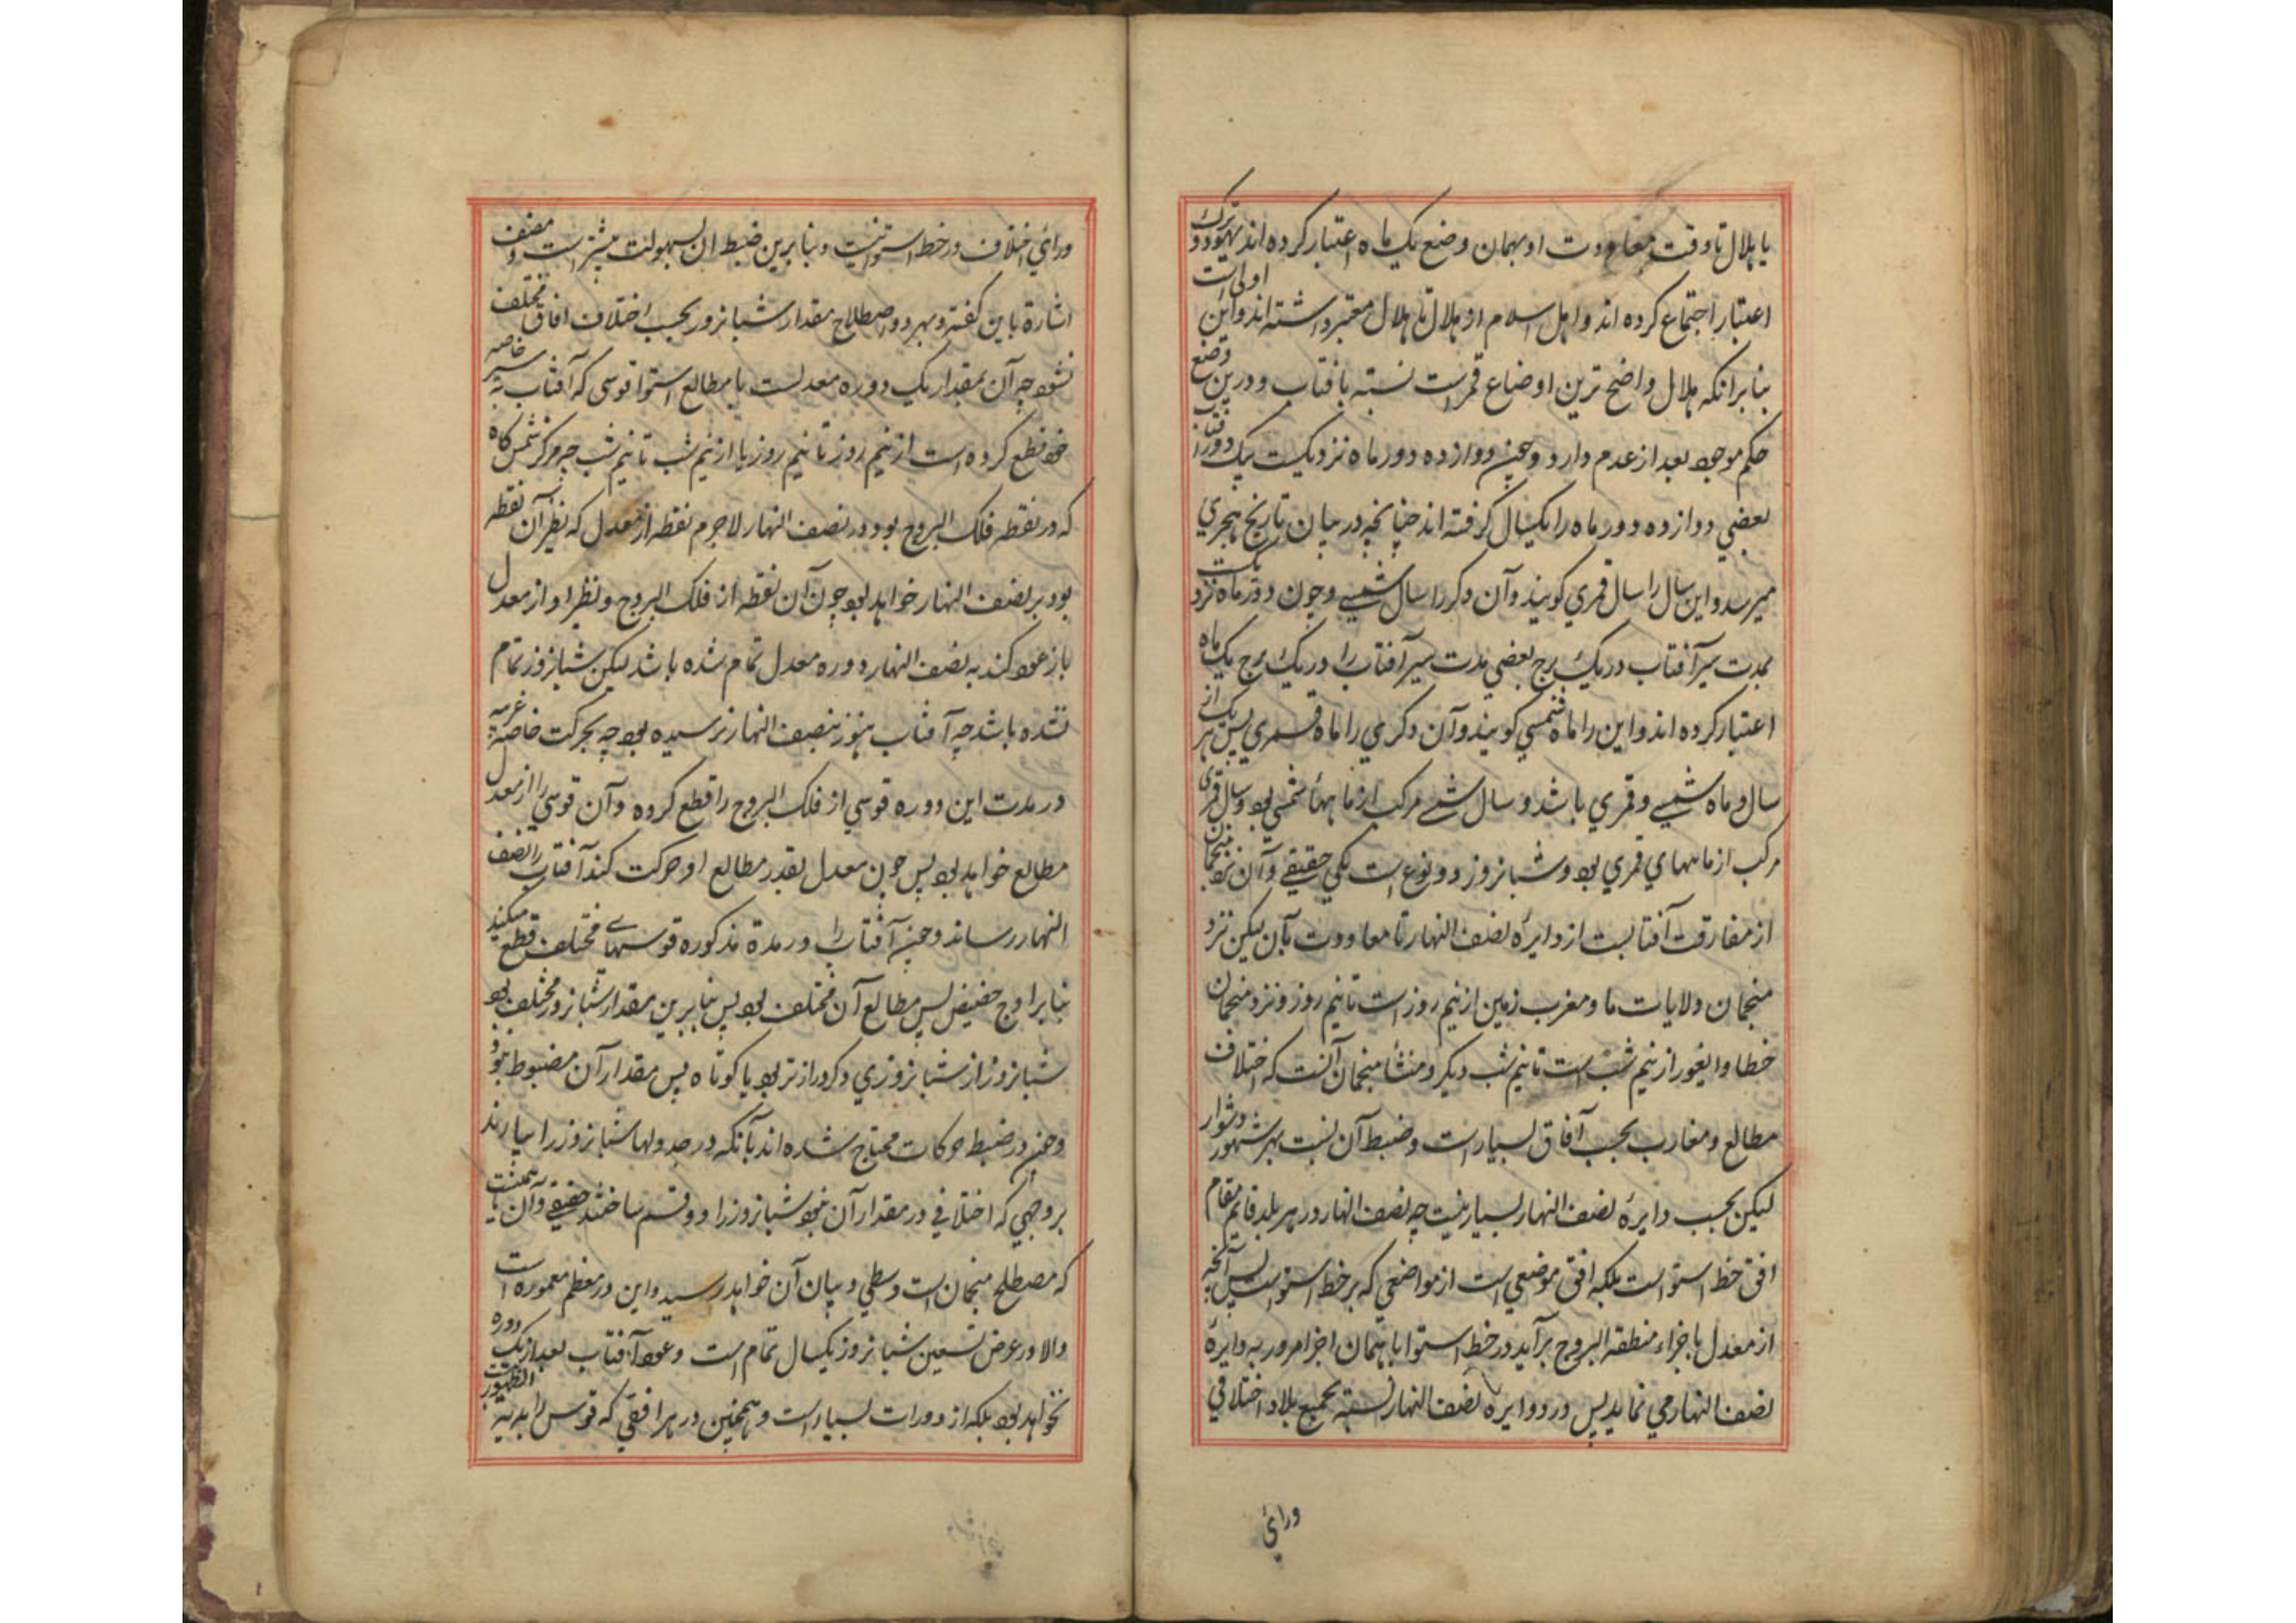 یا هلال تا وقت معاودت او بهمان وضع یک ماه اعتبار کرده اند یهود و ترک
اعتبار اجتماع کرده اند و اهل اسلام از هلال تا هلال معتبر داشته اند و این اولی است
بنابر انکه هلال واضح ترین اوضاع قمرست نسبته بافتاب و درین وضع
حکم موجود بعد از عدم دارد و چون دوازده دور ماه نزدیکست بیک دور آفتاب
بعضي دوازده دور ماه را یکسال کرفته اند چنانچه در بیان تاریخ هجري
میرسد و این سال را سال قمري کویند و آن دکر را سال شمسي و چون دور ماه نزدیکست
بمدت سیر آفتاب در یک برج بعضي مدت سیر آفتاب را در یک برج یک ماه
اعتبار کرده اند و این را ماه شمسي کویند و آن دکري را ماه قمري پس هر یک از
سال و ماه شمسي و قمري باشد و سال شمسي مرکب از ماههاء شمسي بود و سال قمری
مرکب از ماههاي قمري بود و شبانروز دو نوع است یکي حقیقي و آن نزد منجمان
از مفارقت آفتابست از دایرهٔ نصف النهار تا معاودت بآن لیکن نزد
منجمان ولایات ما و مغرب زمین از نیم روزست تا نیم روز و نزد منجمان
خطا و ایغور از نیم شب است تا نیم شب دیکر و منشأ منجمان آنست که اختلاف
مطالع و مغارب بحسب آفاق بسیارست و ضبط آن نسبت بهر شهر دشوار
لیکن بحسب دایرهٔ نصف النهار بسیار نیست چه نصف النهار در هر بلد قایم مقام
افق خط استواست بلکه افق موضعي است از مواضعي که بر خط استواست پس آنچه
از معدل باجزاء منطقة البروج برآید در خط استوا با همان اجزا مرور بدایرهٔ
نصف النهار مي نماید پس در دوایره نصف النهار نسبته بجمیع بلاد اختلافي
وراي
وراي اختلاف در خط استوا نیست و بنابرین ضبط ان بسهولت میسرست و مصنف
اشاره باین کفته و بهر دو اصطلاح مقدار شبانروز بحسب اختلاف افاق مختلف
نشود چه آن بمقدار یک دوره معدلست با مطالع استوا قوسی که آفتاب بسیر خاصه
خود قطع کرده است از نیم روز تا نیم روز یا از نیم شب تا نیم شب چه مرکز شمس کاه
که در نقطه فلک البروج بود در نصف النهار لاجرم نقطه از معدل که نظیر آن نقطه
بود بر نصف النهار خواهد بود چون آن نقطه از فلک البروج و نظیر او از معدل
باز عود کند به نصف النهار دوره معدل تمام شده باشد لیکن شبانروز تمام
نشده باشد چه آفتاب هنوز بنصف النهار نرسیده بود چه بحرکت خاصه غربیه
در مدت این دوره قوسي از فلک البروج را قطع کرده و آن قوسي را از معدل
مطالع خواهد بود پس چون معدل بقدر مطالع او حرکت کند آفتاب را بنصف
النهار رساند و چون آفتاب را در مدة مذکوره قوسهاي مختلف قطع میکند
بنابر اوج حضیض پس مطالع آن مختلف بود پس بنابرین مقدار شبانروز مختلف بود
شبانروز از شبانروزي دکر درازتر بود یا کوتاه پس مقدار آن مضبوط نبود
و چون در ضبط حرکات محتاج شده اند بآنکه در جدولها شبانروز را بیارند
بر وجهي که اختلافي در مقدار آن نبود شبانروز را دو قسم ساختند حقیقي و آن
که مصطلح منجمان است و وسطي و بیان آن خواهد رسید و این در معظم معموره است
والا در عرض تسعین شبانروز یکسال تمام است و عود آفتاب بعد از یک دوره
نخواهد بود بلکه از دورات بسیارست و همچنین در هر افقي که قوس ابدیة الظهور